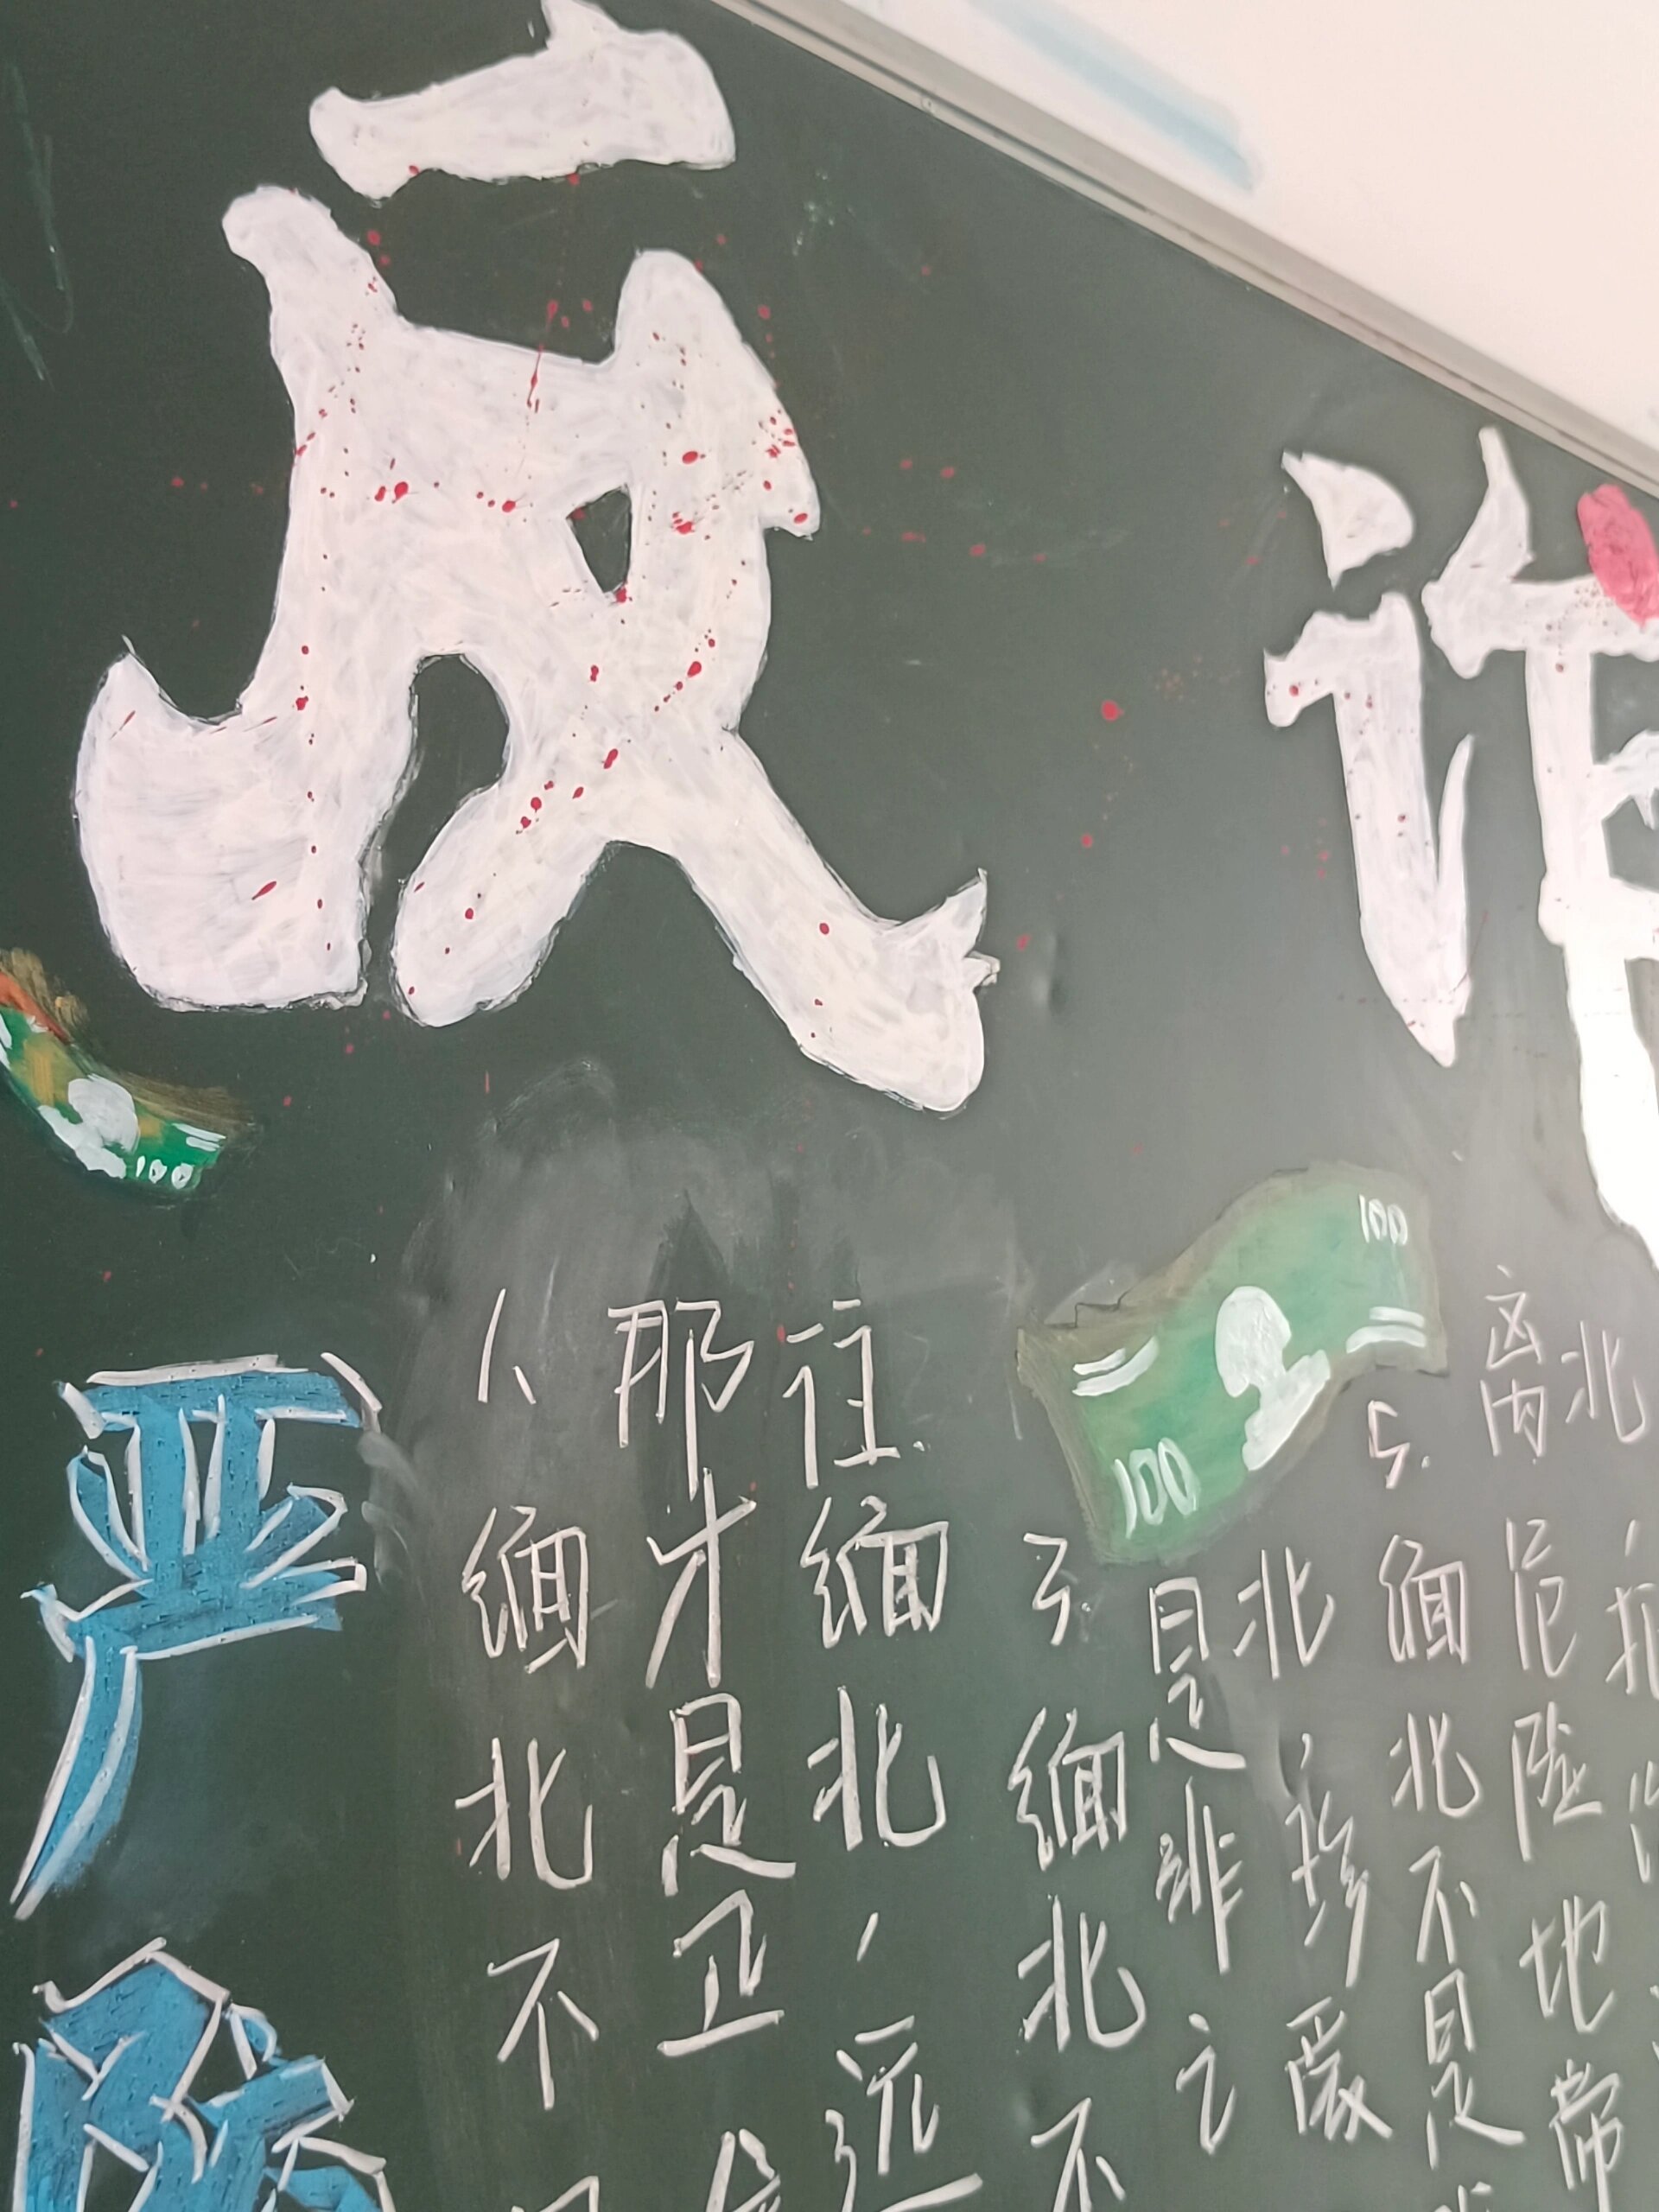 反诈
严防
100
100
100
1、缅北不
那才是卫
往缅北，远
3.缅北不
是非之
北，珍爱
5.缅北不是
离危险地带
北，